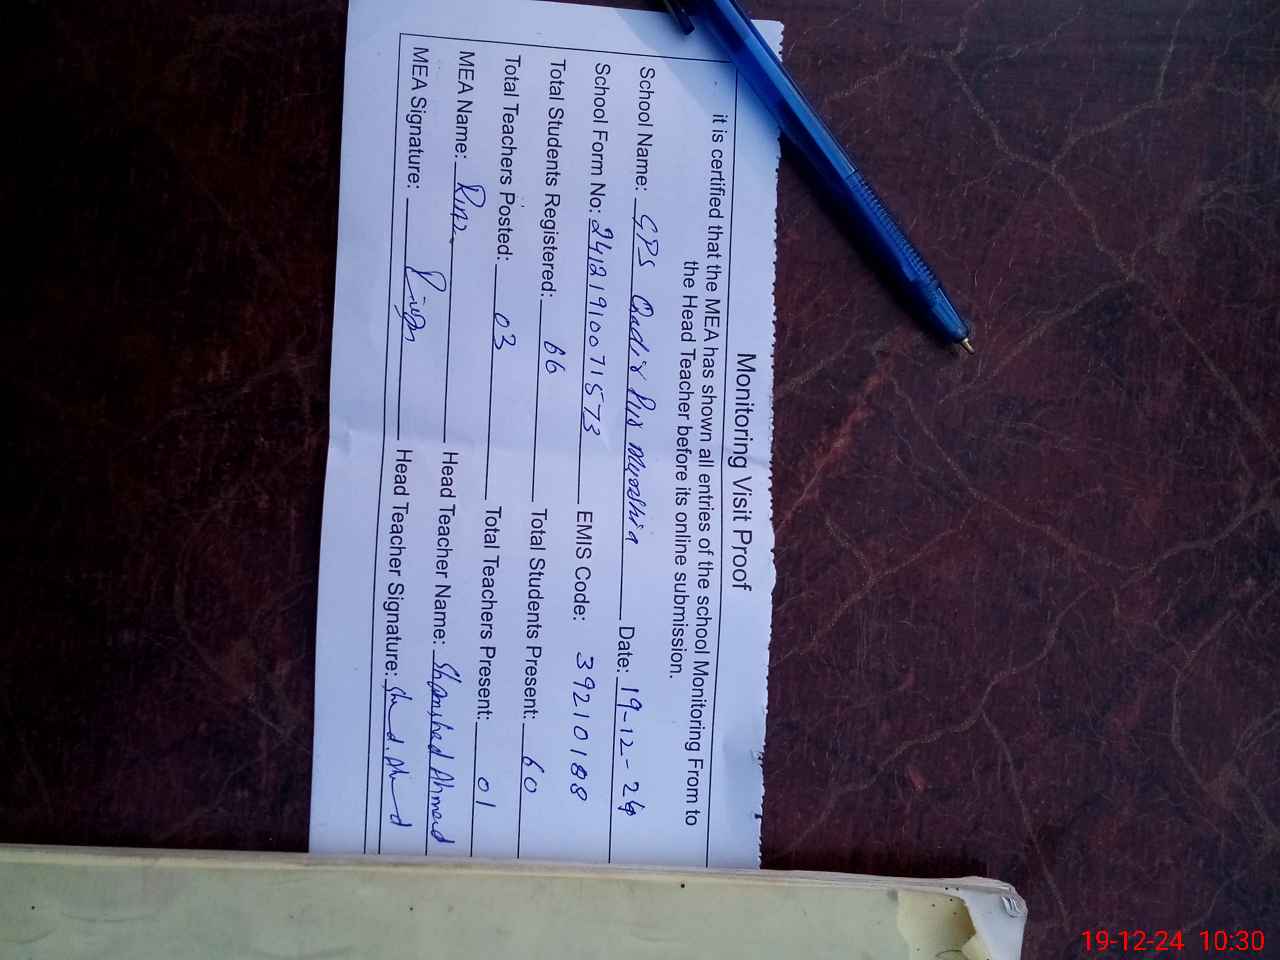 Monitoring Visit Proof
it is certified that the MEA has shown all entries of the school Monitoring From to
the Head Teacher before its online submission.
School Name: GPS Qadir Pur Date: 19-12-24
School Form No: 24121910071573 EMIS Code: 39210188
Total Students Registered: 66 Total Students Present: 60
Total Teachers Posted: 03 Total Teachers Present: 01
MEA Name: Head Teacher Name: Shamshad Ahmad
MEA Signature: Head Teacher Signature:
19-12-24 10:30